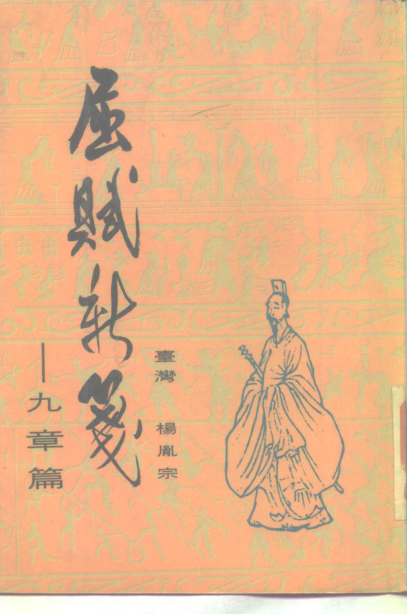 屈賦新箋
—九章篇
臺灣 楊胤宗